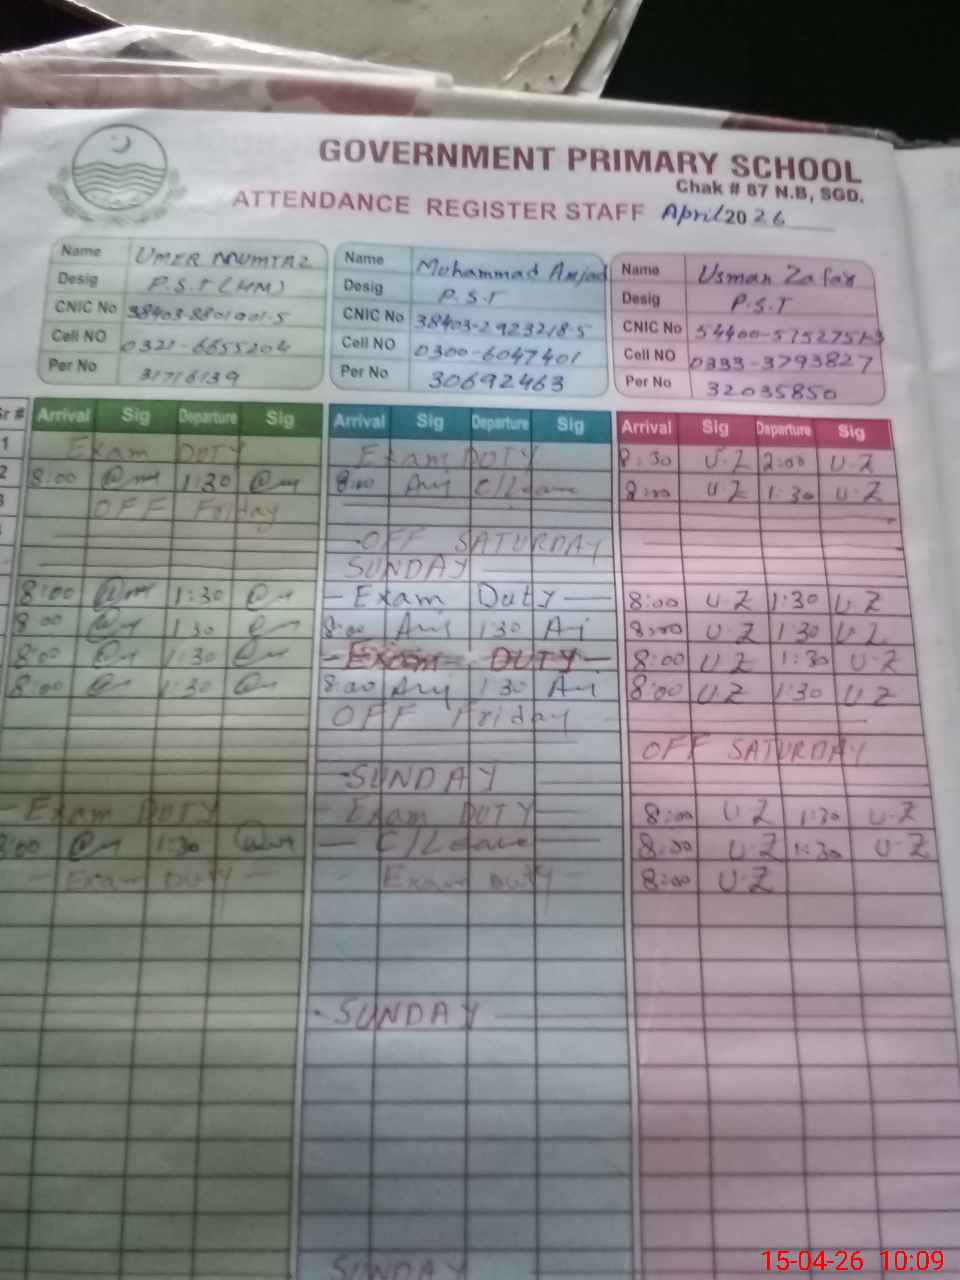 GOVERNMENT PRIMARY SCHOOL
Chak # 87 N.B, SGD.
ATTENDANCE REGISTER STAFF April 2026
Name UMER MUMTAZ Name Muhammad Amjad Name Usman Zafar
Desig P.S.T (HM) Desig P.S.T Desig P.S.T
CNIC No 38403-8801901-5 CNIC No 38403-2923218-5 CNIC No
Cell NO 0321-6655204 Cell NO 0300-6047401 Cell NO 0333-3793827
Per No 31716139 Per No 30692463 Per No 32035850
Sr # Arrival Sig Departure Sig Arrival Sig Departure Sig Arrival Sig Departure Sig
1 Exam DUTY Exam DUTY 8:30 U.Z 2:00 U.Z
2 8:00 1:30 8:00 Amj C/Leave 8:00 U.Z 1:30 U.Z
3 OFF Friday
OFF SATURDAY
SUNDAY
8:00 1:30 Exam Duty 8:00 U Z 1:30 U.Z
8:00 1:30 8:00 Amj 1:30 Aj 8:00 U Z 1:30 U Z
8:00 1:30 Exam DUTY 8:00 U Z 1:30 U.Z
8:00 1:30 8:00 Amj 1:30 Aj 8:00 U Z 1:30 U Z
OFF Friday
OFF SATURDAY
SUNDAY
Exam DUTY Exam DUTY 8:00 U Z 1:30 U-Z
8:00 1:30 C/Leave 8:00 U-Z 1:30 U-Z
Exam DUTY Exam DUTY 8:00 U-Z
SUNDAY
SUNDAY
15-04-26 10:09